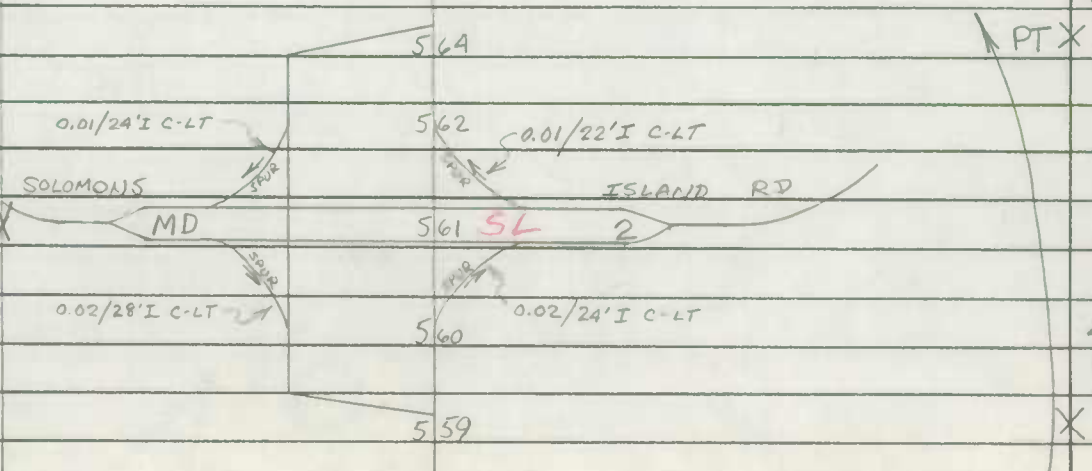 5 64
PT X
0.01/24'I C-LT
5 62
0.01/22'I C-LT
SPUR
SPUR
SOLOMONS
ISLAND RD
MD
5 61
SL
2
SPUR
SPUR
0.02/28'I C-LT
0.02/24'I C-LT
5 60
5 59
X